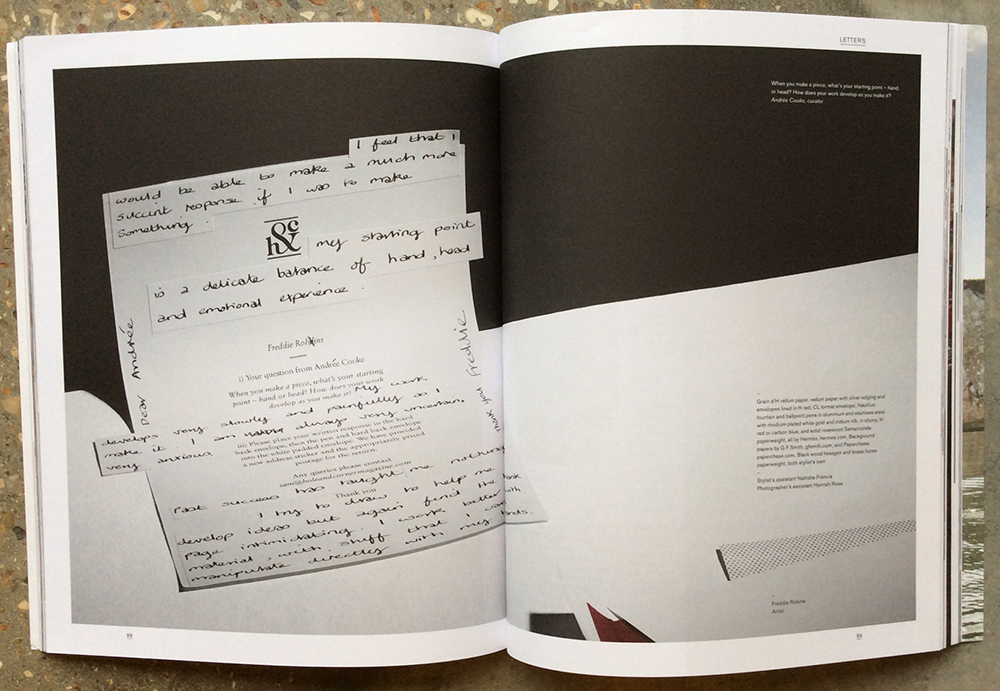 I feel that I
would be able to make a much more
succint response if I was to make
something.
h&c
my starting point
is a delicate balance of hand, head
and emotional experience.
Dear Andrée
Freddie Robins
i) Your question from Andrée Cooke
When you make a piece, what's your starting
point – hand or head? How does your work
develop as you make it?
My work
develops very slowly and painfully as I
make it. I am always very uncertain,
very anxious.
ii) Please place your written response in the hard
back envelope, then the pen and hard back envelope
into the white padded envelope. We have provided
a new address sticker and the appropriately priced
postage for the return.
Any queries please contact
sam@holeandcornermagazine.com
Thank you
Past success has taught me nothing
I try to draw to help me
develop ideas but again find the blank
page intimidating. I work better with
material, with stuff that I can
manipulate directly with my hands.
thank you Freddie
88
LETTERS
When you make a piece, what's your starting point – hand
or head? How does your work develop as you make it?
Andrée Cooke, curator
Grain d'H vellum paper, vellum paper with silver edging and
envelopes lined in H red, CL formel envelope, Nautilus
fountain and ballpoint pens in aluminium and stainless steel
with rhodium-plated white gold and iridium nib, in ebony, H
red or carbon blue, and solid rosewood Samarcande
paperweight, all by Hermès, hermes.com. Background
papers by G.F Smith, gfsmith.com, and Paperchase,
paperchase.com. Black wood hexagon and brass horse
paperweight, both stylist's own
Stylist's assistant Nathalie Francis
Photographer's assistant Hannah Rose
Freddie Robins
Artist
89